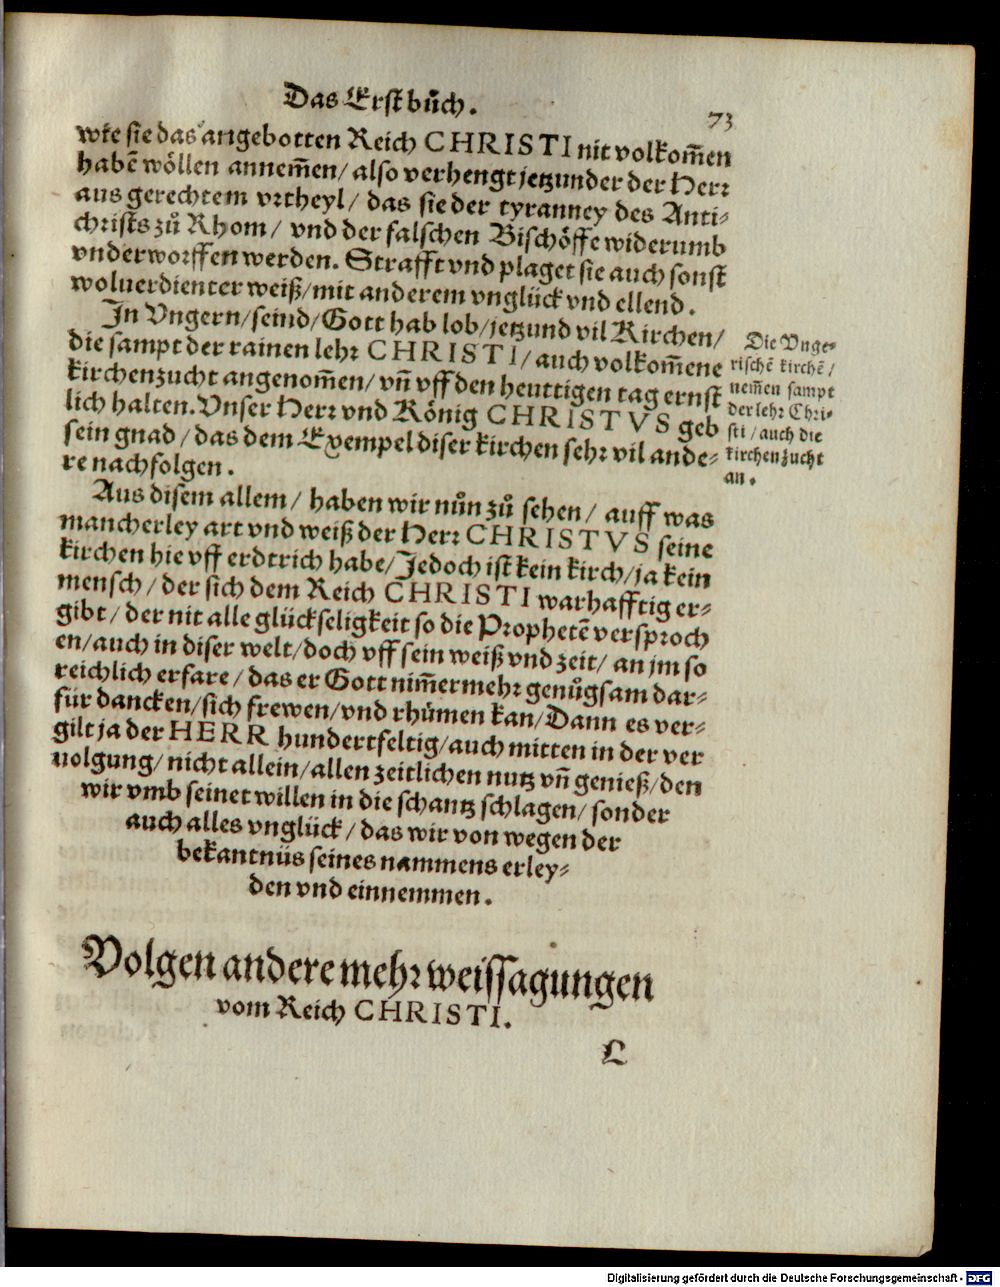 Das Erst bůch.
73
wie sie das angebotten Reich CHRISTI nit volkom̃en
habẽ wöllen annem̃en/ also verhengt jetzunder der Herr
aus gerechtem vrtheyl/ das sie der tyranney des Anti-
christs zů Rhom/ vnd der falschen Bischöffe widerumb
vnderworffen werden. Strafft vnd plaget sie auch sonst
woluerdienter weiß/mit anderem vnglück vnd ellend.
In Vngern/seind/Gott hab lob/jetzund vil Kirchen/
die sampt der rainen lehr CHRISTI/auch volkom̃ene
kirchenzucht angenom̃en/ vñ vff den heuttigen tag ernst
lich halten. Vnser Herr vnd König CHRISTVS geb
sein gnad/das dem Exempel diser kirchen sehr vil ande-
re nachfolgen.
Die Vnge-
rischẽ kirchẽ/
nem̃en sampt
der lehr Chri-
sti/auch die
kirchenzucht
an.
Aus disem allem/ haben wir nůn zů sehen/ auff was
mancherley art vnd weiß der Herr CHRISTVS seine
kirchen hie vff erdtrich habe/Jedoch ist kein kirch/ja kein
mensch/der sich dem Reich CHRISTI warhafftig er-
gibt/der nit alle glückseligkeit so die Prophetẽ versproch
en/auch in diser welt/doch vff sein weiß vnd zeit/ an jm so
reichlich erfare/das er Gott nim̃ermehr genůgsam dar-
für dancken/sich frewen/vnd rhümen kan/Dann es ver-
gilt ja der HERR hundertfeltig/auch mitten in der ver
uolgung/nicht allein/allen zeitlichen nutz vñ genieß/den
wir vmb seinet willen in die schantz schlagen/ sonder
auch alles vnglück/das wir von wegen der
bekantnüs seines nammens erley-
den vnd einnemmen.
Volgen andere mehr weissagungen
vom Reich CHRISTI.
L
Digitalisierung gefördert durch die Deutsche Forschungsgemeinschaft - DFG